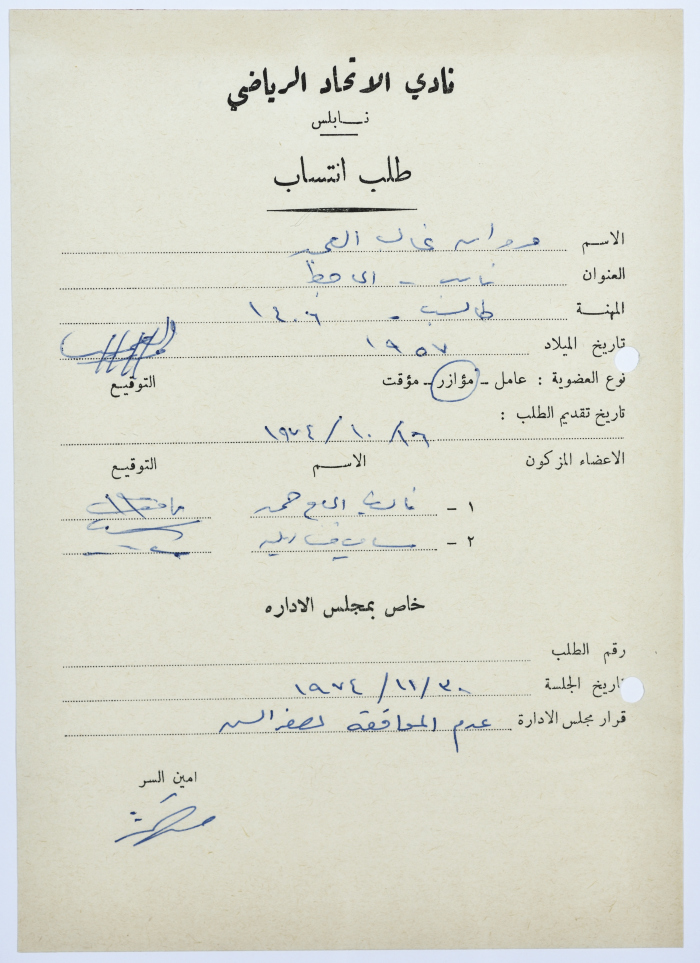 نادي الاتحاد الرياضي
نابلس
طلب انتساب
الاسم مروان غالب
العنوان نابلس -
المهنة طالب - ١٤٠٦
تاريخ الميلاد ١٩٥٧
نوع العضوية : عامل - مؤازر - مؤقت
التوقيع
تاريخ تقديم الطلب :
١٦/١٠/١٩٧٤
الاعضاء المزكون الاسم التوقيع
١ -
٢ - سامي
خاص بمجلس الاداره
رقم الطلب
تاريخ الجلسة ٣٠/١١/١٩٧٤
قرار مجلس الادارة عدم الموافقة لصغر السن
امين السر